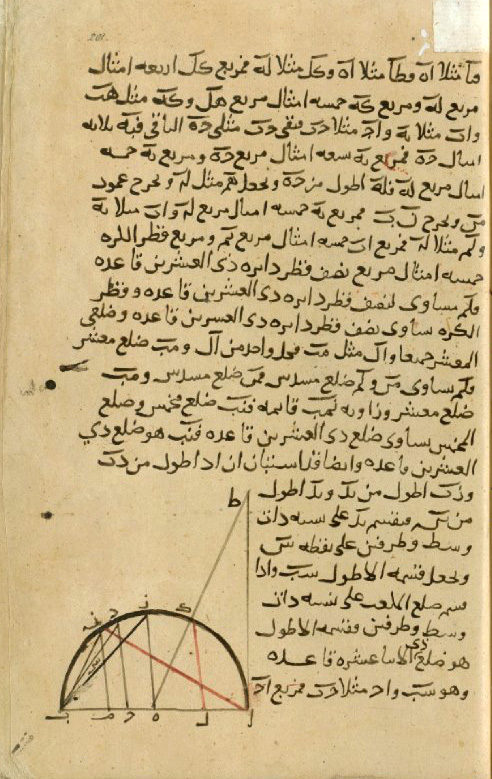 مثلا آه وطآ مثلا آه وكل مثلا له فمربع كل اربعه امثال
مربع له ومربع كه خمسه امثال مربع هل وكه مثل هب
واب مثلا به واد مثلا دب فبقى دب مثلى ده الباقى فبه ثلاثه
امثال ده فمربع به تسعه امثال مربع ده ومربع به خمسه
امثال مربع له فله اطول من ده ونجعل هم مثل له ونخرج عمود
من ونخرج ن ب فمربع به خمسه امثال مربع له واب مثلا به
ولم مثلا له فمربع اب خمسه امثال مربع لم ومربع قطر الكره
خمسه امثال مربع نصف قطر دايره ذى العشرين قاعده
فلم يساوى لنصف قطر دايره ذى العشرين قاعده وقطر
الكره يساوى نصف قطر دايره ذى العشرين قاعده وضلعى
المعشر جميعا وال مثل مب فكل واحد من ال ومب ضلع معشر
فلم يساوى من ولم ضلع مسدس فمن ضلع مسدس ومب
ضلع معشر وزاويه نمب قايمه فنب ضلع مخمس وضلع
المخمس يساوى ضلع ذى العشرين قاعده فنب هو ضلع ذي
العشرين قاعده وايضا قد استبان ان اد اطول من دب
اطول من بد وبد اطول
من فنقسم بد على نسبه ذات
وسط وطرفين على نقطه س
ونجعل قسمه الاطول سب واذا
قسم ضلع المكعب على نسبه ذات
وسط وطرفين فقسمه الاطول
هو ضلع ذي الاثنا عشره قاعده
وهو سب واد مثلا دب فمربع اد
ط
ك
ز
ح
ن
س
ب
م
د
ه
ل
ا